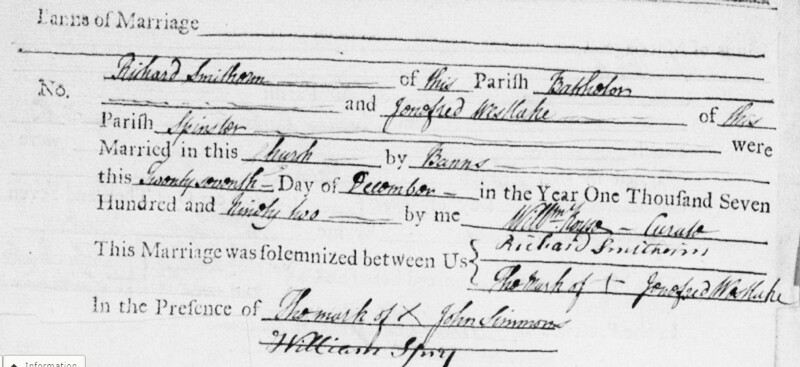 Banns of Marriage
Richard Smithorm of this Parish Batcholor
No. and Jonofred Westlake of this
Parish Spinster were
Married in this Church by Banns
this Twenty seventh Day of December in the Year One Thousand Seven
Hundred and Ninety two by me Curate
Richard Smitheim
This Marriage was solemnized between Us
The Mark of + Jonofred Westlake
In the Presence of The mark of X John Simmons
William Spry
Information